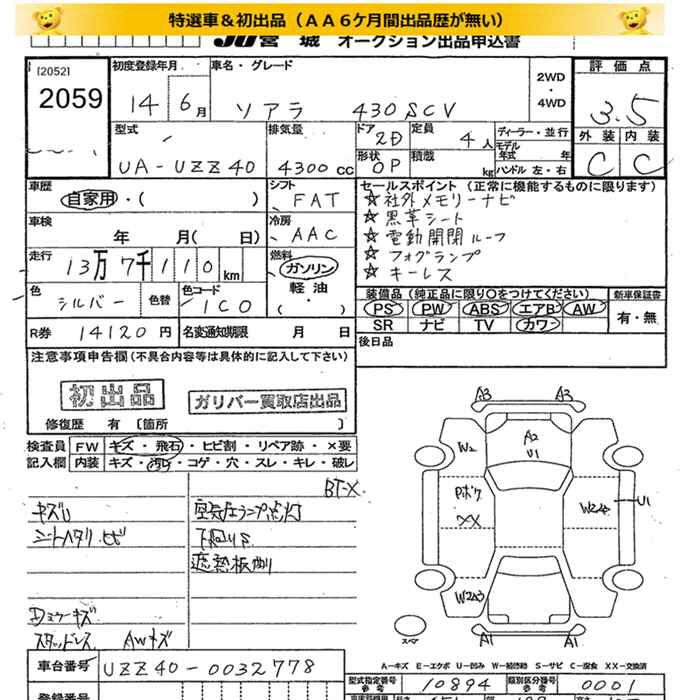 特選車&初出品(AA6ケ月間出品歴が無い)
JU宮 城 オークション出品申込書
[2052]
2059
初度登録年月
14 6月
車名・グレード
ソアラ 430SCV
2WD
・
4WD
評 価 点
3.5
外 装 内 装
C C
型式
UA-UZZ40
排気量
4300cc
ドア
2D
定員
4人
形状
OP
積載
kg
ディーラー・並行
モデル
年式 年
ハンドル 左・右
車歴
自家用・( )
シフト
FAT
車検
年 月( 日)
冷房
AAC
走行
13万7千110km
燃料
ガソリン
軽 油
色
シルバー
色替
色コード
1C0
R券 14120円
名変通知期限 月 日
セールスポイント(正常に機能するものに限ります)
☆社外メモリーナビ
☆黒革シート
☆電動開閉ルーフ
☆フォグランプ
☆キーレス
装備品(純正品に限り○をつけてください)
PS PW ABS エアB AW
SR ナビ TV カワ
新車保証書
有・無
後日品
注意事項申告欄(不具合内容等は具体的に記入して下さい)
初出品 ガリバー買取店出品
修復歴 有〔箇所 〕
検査員
記入欄
FW キズ・飛石・ヒビ割・リペア跡・×要
内装 キズ・汚レ・コゲ・穴・スレ・キレ・破レ
BT-X
キズU
シートヘタリ ヒビ
空気圧ランプ点灯
下回りS
遮熱板削
Dミラーキズ
スタッドレス AWキズ
車台番号 UZZ40-0032778
A3 A3
W2
A2
U1
Pボケ
XX
W2A2
U1
W2A3
A1 A1
スペア
A-キズ E-エクボ U-凹み W-補修跡 S-サビ C-腐食 XX-交換済
型式指定番号
参 考
10894
類別区分番号
参 考
0001
登録番号